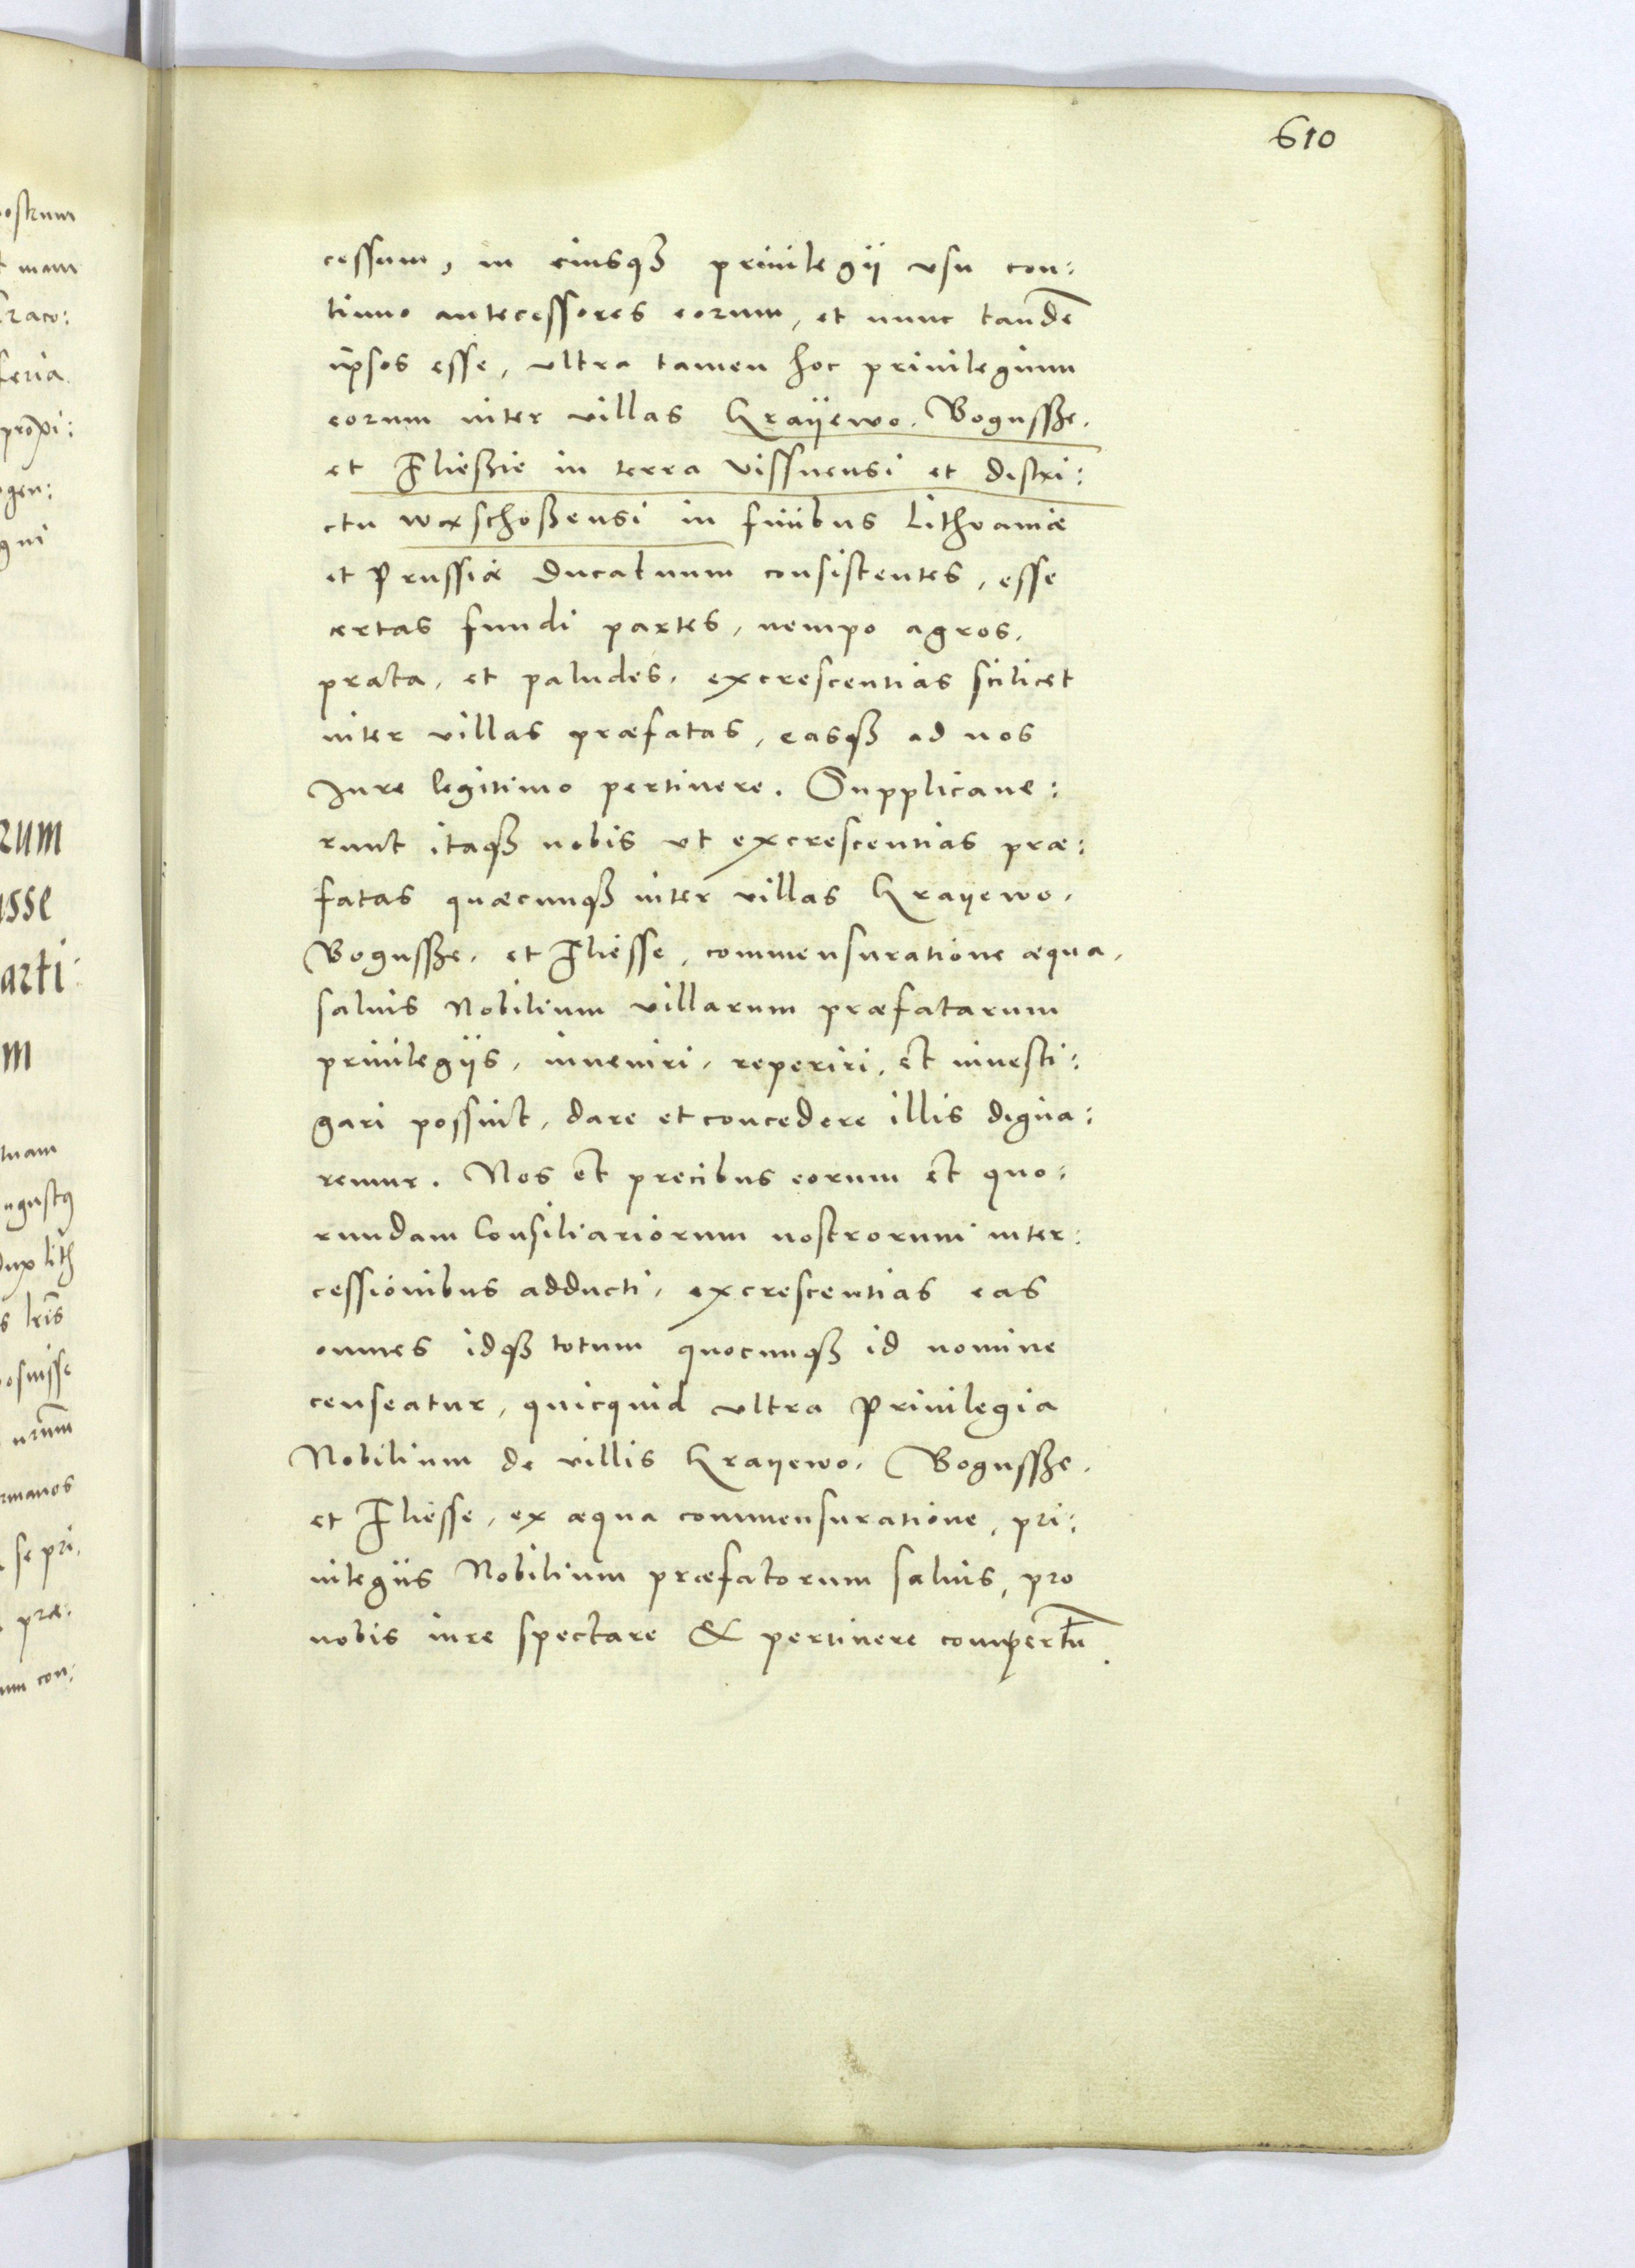 610
cessum, in eiusqȝ priuilegij vsu con:
tinuo antecessores eorum, et nunc tandē
ipsos esse, vltra tamen hoc priuilegium
eorum inter villas Krayewo. Bogussze.
et Flieszie in terra vissnensi et distri:
ctu wąschoszensi in finibus Lithvaniæ
et Prussiæ Ducatuum consistentes, esse
certas fundi partes, nempe agros,
prata, et paludes, excrescentias scilicet
inter villas præfatas, easqȝ ad nos
Iure legitimo pertinere. Supplicaue:
runt itaqȝ nobis vt excrescentias præ:
fatas quæcunqȝ inter villas Krayewo,
Bogussze, et Fliesse, commensuratione æqua,
saluis Nobilium villarum præfatarum
priuilegijs, inueniri, reperiri, et inuesti:
gari possint, dare et concedere illis digna:
remur. Nos et precibus eorum et quo:
rundam Consiliariorum nostrorum inter:
cessionibus adducti, excrescentias eas
omnes idqȝ totum quocunqȝ id nomine
censeatur, quicquid vltra Priuilegia
Nobilium de villis Krayewo. Bogussze.
et Fliesse, ex æqua commensuratione, pri:
uilegijs Nobilium præfatorum saluis, pro
nobis iure spectare & pertinere compertū.